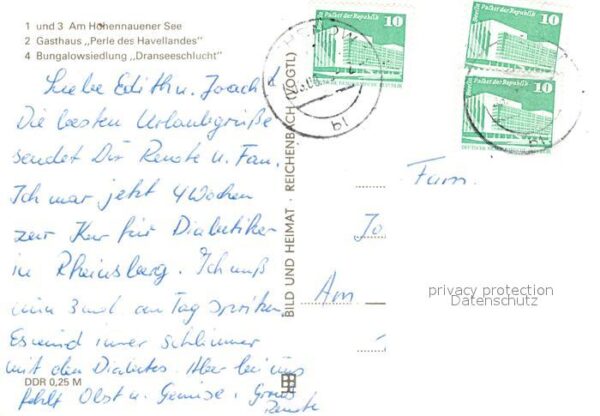 1 und 3 Am Hohennauener See
2 Gasthaus „Perle des Havellandes"
4 Bungalowsiedlung „Dranseeschlucht"
Liebe Edith u. Joach
Die besten Urlaubsgrüße
sendet Dir Renate u. Fam.
Ich war jetzt 4 Wochen
zur Kur für Diabetiker
in Rheinsberg. Ich muß
nun 3mal am Tag spritzen
Es wird immer schlimmer
mit den Diabetes. Aber bei uns
fehlt Obst u. Gemüse. Gruß
Renate
DDR 0,25 M
BILD UND HEIMAT · REICHENBACH (VOGTL)
Berlin Palast der Republik
10
Berlin Palast der Republik
10
Berlin Palast der Republik
10
DEUTSCHE DEMOKRATISCHE REPUBLIK
b1
Fam.
Jo
Am
privacy protection
Datenschutz